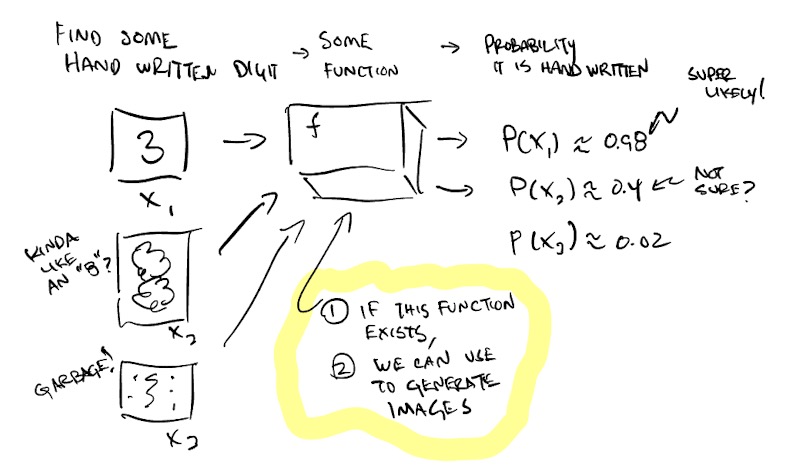 FIND SOME
HAND WRITTEN DIGIT
→ SOME
FUNCTION
→ PROBABILITY
IT IS HAND WRITTEN
SUPER
LIKELY!
3
X₁
f
P(X₁) ≈ 0.98
P(X₂) ≈ 0.4 ← NOT
SURE?
P(X₃) ≈ 0.02
KINDA
LIKE
AN "8"?
X₂
GARBAGE!
X₃
① IF THIS FUNCTION
EXISTS,
② WE CAN USE
TO GENERATE
IMAGES